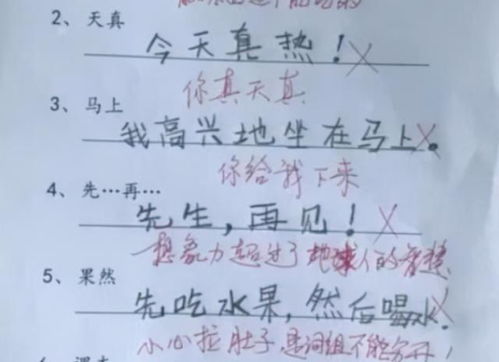 2、天真
今天真热！
你真天真
3、马上
我高兴地坐在马上。
你给我下来
4、先…再…
先生，再见！
想象力超过了地球人的智慧
5、果然
先吃水果，然后喝水
小心拉肚子，是词组不能分开！